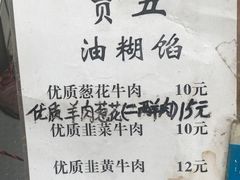 贡丑
油糊馅
优质葱花牛肉 10元
优质羊肉葱花(二两羊肉)15元
优质韭菜牛肉 10元
优质韭黄牛肉 12元